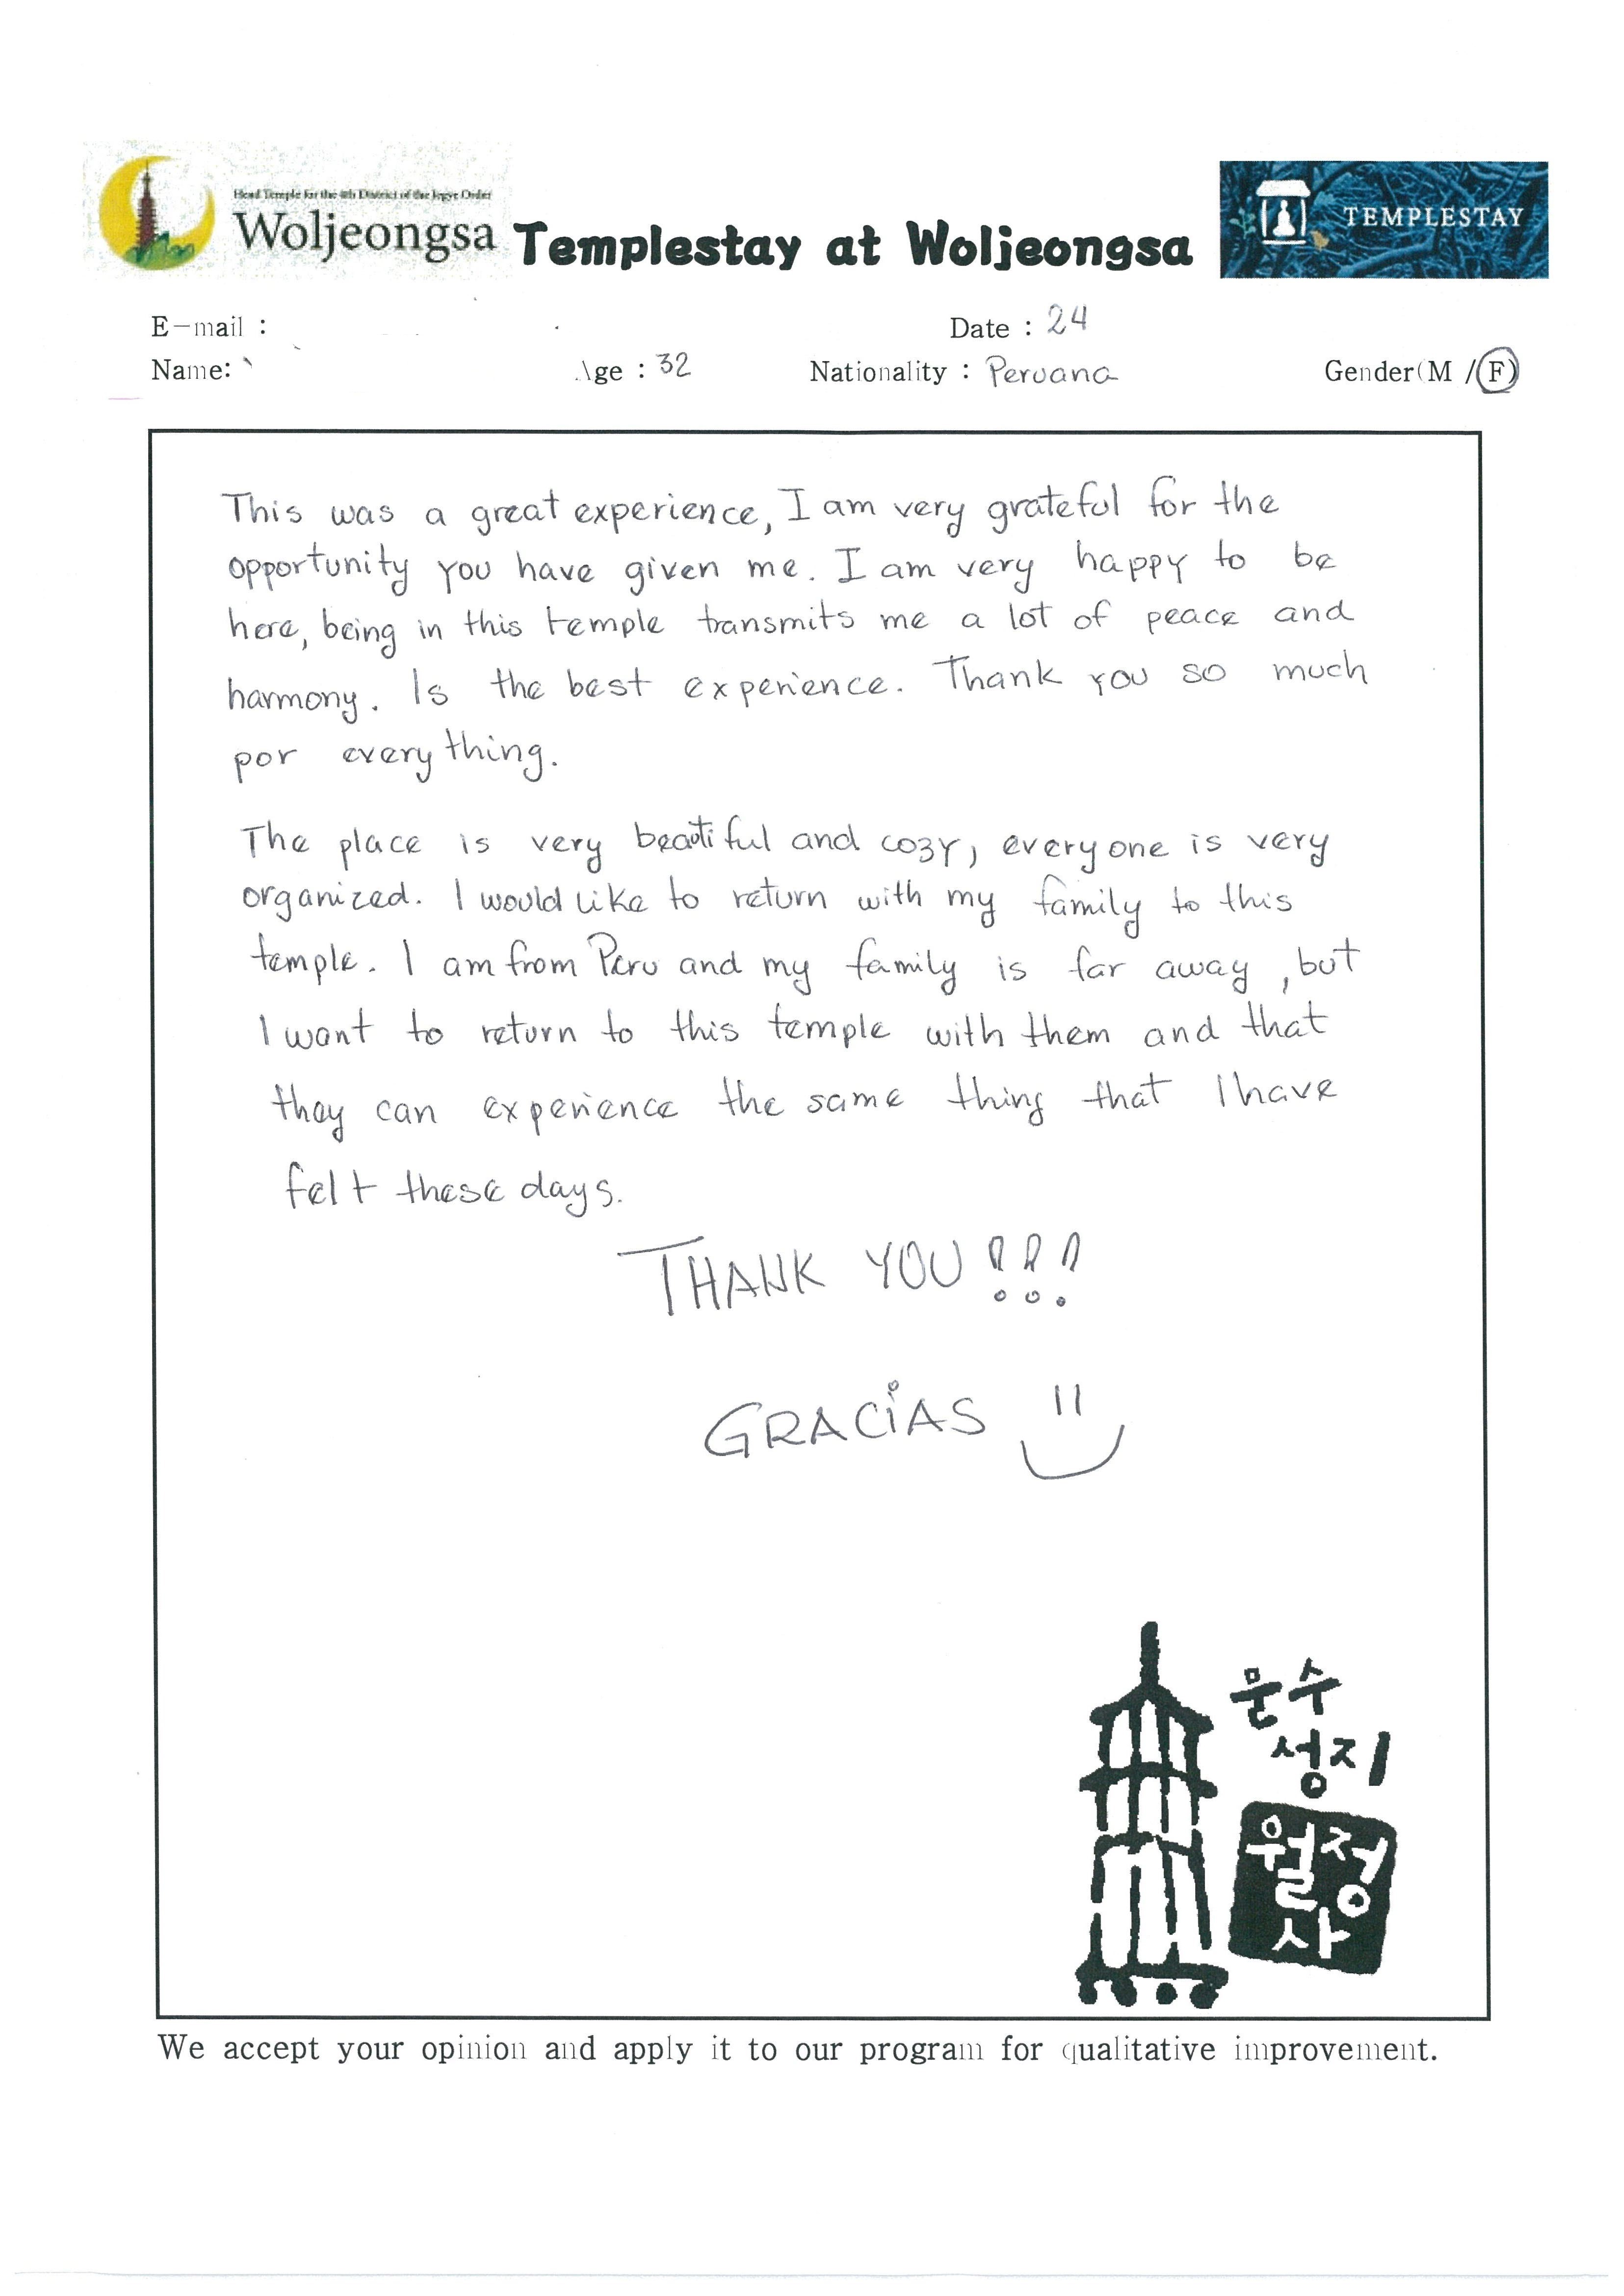 Head Temple for the 4th District of the Jogye Order
Woljeongsa
Templestay at Woljeongsa
TEMPLESTAY
E-mail :
Date : 24
Name:
Age : 32
Nationality : Peruana
Gender(M / F)
This was a great experience, I am very grateful for the
opportunity you have given me. I am very happy to be
here, being in this temple transmits me a lot of peace and
harmony. Is the best experience. Thank you so much
por everything.
The place is very beautiful and cozy, everyone is very
organized. I would like to return with my family to this
temple. I am from Peru and my family is far away, but
I want to return to this temple with them and that
they can experience the same thing that I have
felt these days.
THANK YOU!!!
GRACiAS
문수
성지
월정
사
We accept your opinion and apply it to our program for qualitative improvement.